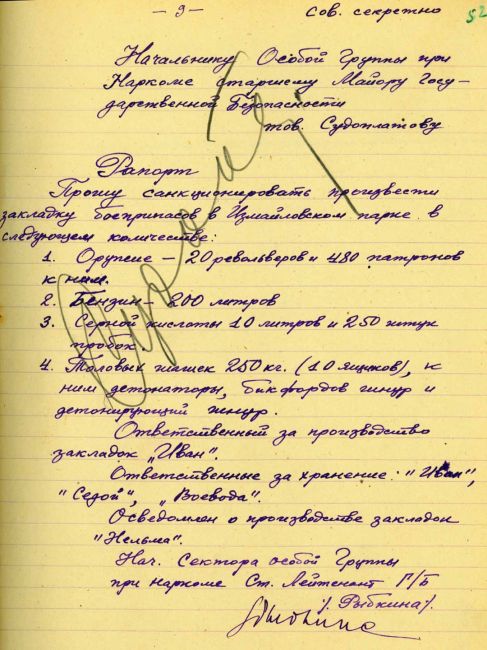 — 9 —
Сов. секретно
52
Начальнику Особой Группы при
Наркоме старшему Майору Госу-
дарственной Безопасности
тов. Судоплатову
Рапорт
Прошу санкционировать произвести
закладку боеприпасов в Измайловском парке в
следующем количестве:
1. Оружие — 20 револьверов и 480 патронов
к ним.
2. Бензин — 200 литров
3. Серной кислоты 10 литров и 250 штук
пробок.
4. Толовых шашек 250 кг. (10 ящиков), к
ним детонаторы, бикфордов шнур и
детонирующий шнур.
Ответственный за производство
закладок „Иван".
Ответственные за хранение: "Иван",
"Сезой", „Воевода".
Осведомлен о производстве закладок
"Нельма".
Нач. Сектора особой Группы
при наркоме Ст. Лейтенант Г/Б
/. Рыбкина/.